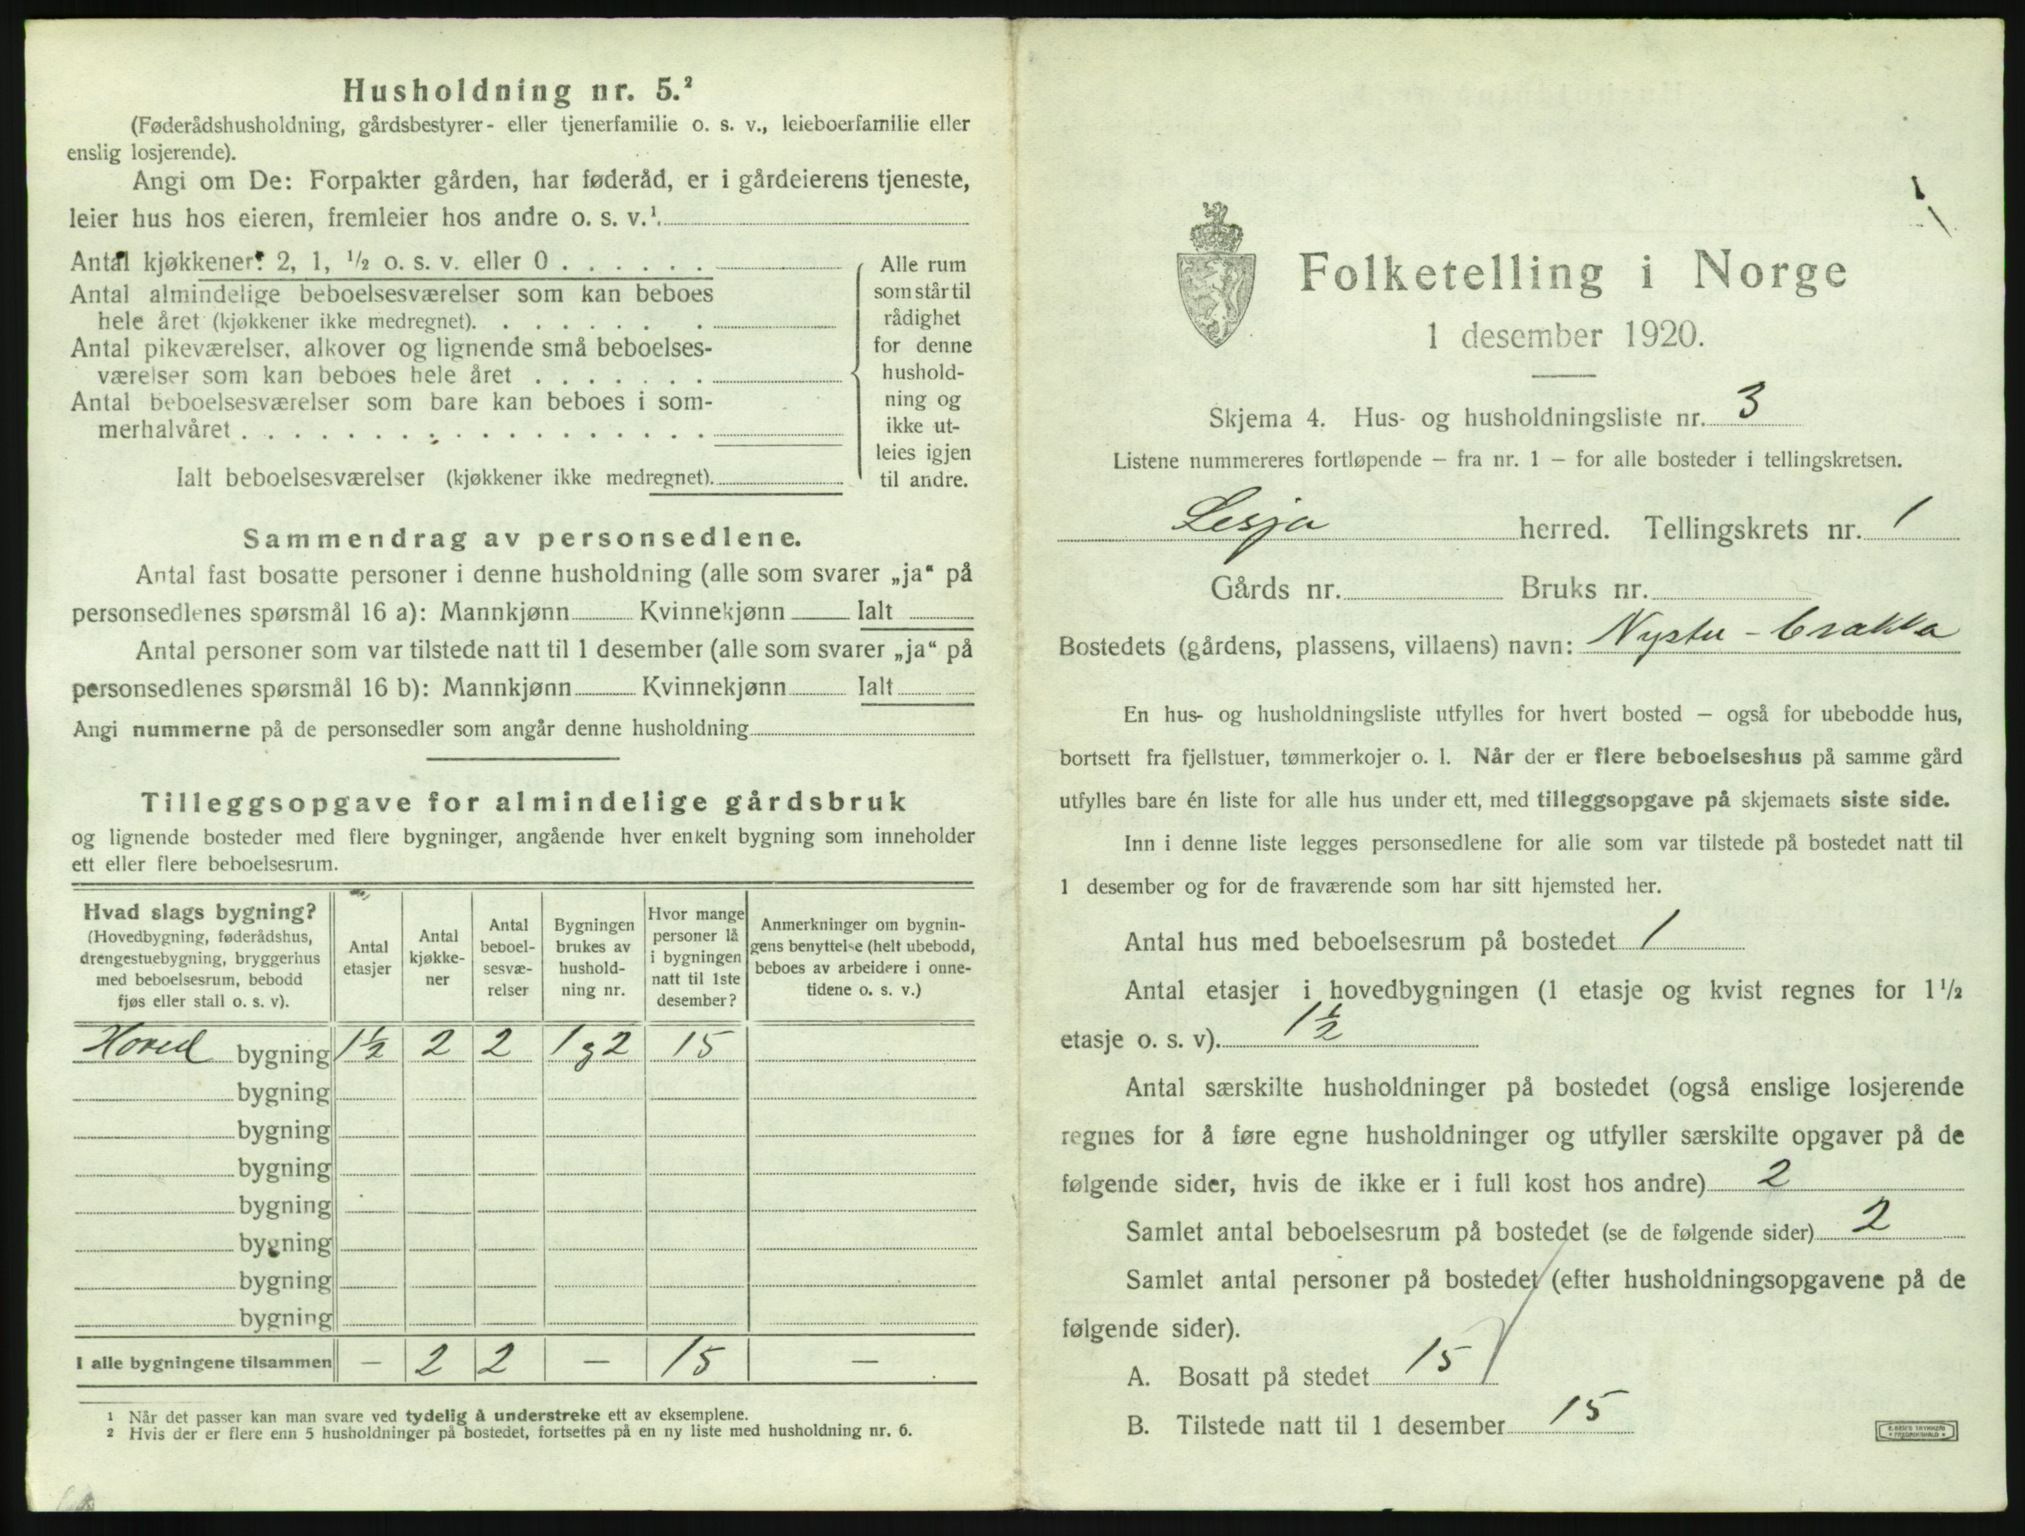 Husholdning nr. 5.²
(Føderådshusholdning, gårdsbestyrer- eller tjenerfamilie o. s. v., leieboerfamilie eller
enslig losjerende).
Angi om De: Forpakter gården, har føderåd, er i gårdeierens tjeneste,
leier hus hos eieren, fremleier hos andre o. s. v.¹
Antal kjøkkener: 2, 1, ½ o. s. v. eller 0 . . . . . .
Antal almindelige beboelsesværelser som kan beboes
hele året (kjøkkener ikke medregnet). . . . . . . .
Antal pikeværelser, alkover og lignende små beboelses-
værelser som kan beboes hele året . . . . . . .
Antal beboelsesværelser som bare kan beboes i som-
merhalvåret . . . . . . . . . . . . . . . . . .
Ialt beboelsesværelser (kjøkkener ikke medregnet).
Alle rum
som står til
rådighet
for denne
hushold-
ning og
ikke ut-
leies igjen
til andre.
Sammendrag av personsedlene.
Antal fast bosatte personer i denne husholdning (alle som svarer „ja“ på
personsedlenes spørsmål 16 a): Mannkjønn Kvinnekjønn Ialt
Antal personer som var tilstede natt til 1 desember (alle som svarer „ja“ på
personsedlenes spørsmål 16 b): Mannkjønn Kvinnekjønn Ialt
Angi nummerne på de personsedler som angår denne husholdning
Tilleggsopgave for almindelige gårdsbruk
og lignende bosteder med flere bygninger, angående hver enkelt bygning som inneholder
ett eller flere beboelsesrum.
Hvad slags bygning?
(Hovedbygning, føderådshus,
drengestuebygning, bryggerhus
med beboelsesrum, bebodd
fjøs eller stall o. s. v).
Antal
etasjer
Antal
kjøkke-
ner
Antal
beboel-
sesvæ-
relser
Bygningen
brukes av
hushold-
ning nr.
Hvor mange
personer lå
i bygningen
natt til 1ste
desember?
Anmerkninger om bygnin-
gens benyttelse (helt ubebodd,
beboes av arbeidere i onne-
tidene o. s. v.)
Hoved bygning 1½ 2 2 1 og 2 15
bygning
bygning
bygning
bygning
bygning
bygning
bygning
I alle bygningene tilsammen — 2 2 — 15 —
¹ Når det passer kan man svare ved tydelig å understreke ett av eksemplene.
² Hvis der er flere enn 5 husholdninger på bostedet, fortsettes på en ny liste med husholdning nr. 6.
Folketelling i Norge
1 desember 1920.
Skjema 4. Hus- og husholdningsliste nr. 3
Listene nummereres fortløpende – fra nr. 1 – for alle bosteder i tellingskretsen.
Lesja herred. Tellingskrets nr. 1
Gårds nr. Bruks nr.
Bostedets (gårdens, plassens, villaens) navn: Nystu-brakka
En hus- og husholdningsliste utfylles for hvert bosted – også for ubebodde hus,
bortsett fra fjellstuer, tømmerkojer o. l. Når der er flere beboelseshus på samme gård
utfylles bare én liste for alle hus under ett, med tilleggsopgave på skjemaets siste side.
Inn i denne liste legges personsedlene for alle som var tilstede på bostedet natt til
1 desember og for de fraværende som har sitt hjemsted her.
Antal hus med beboelsesrum på bostedet 1
Antal etasjer i hovedbygningen (1 etasje og kvist regnes for 1½
etasje o. s. v). 1½
Antal særskilte husholdninger på bostedet (også enslige losjerende
regnes for å føre egne husholdninger og utfyller særskilte opgaver på de
følgende sider, hvis de ikke er i full kost hos andre) 2
Samlet antal beboelsesrum på bostedet (se de følgende sider) 2
Samlet antal personer på bostedet (efter husholdningsopgavene på de
følgende sider).
A. Bosatt på stedet 15
B. Tilstede natt til 1 desember 15